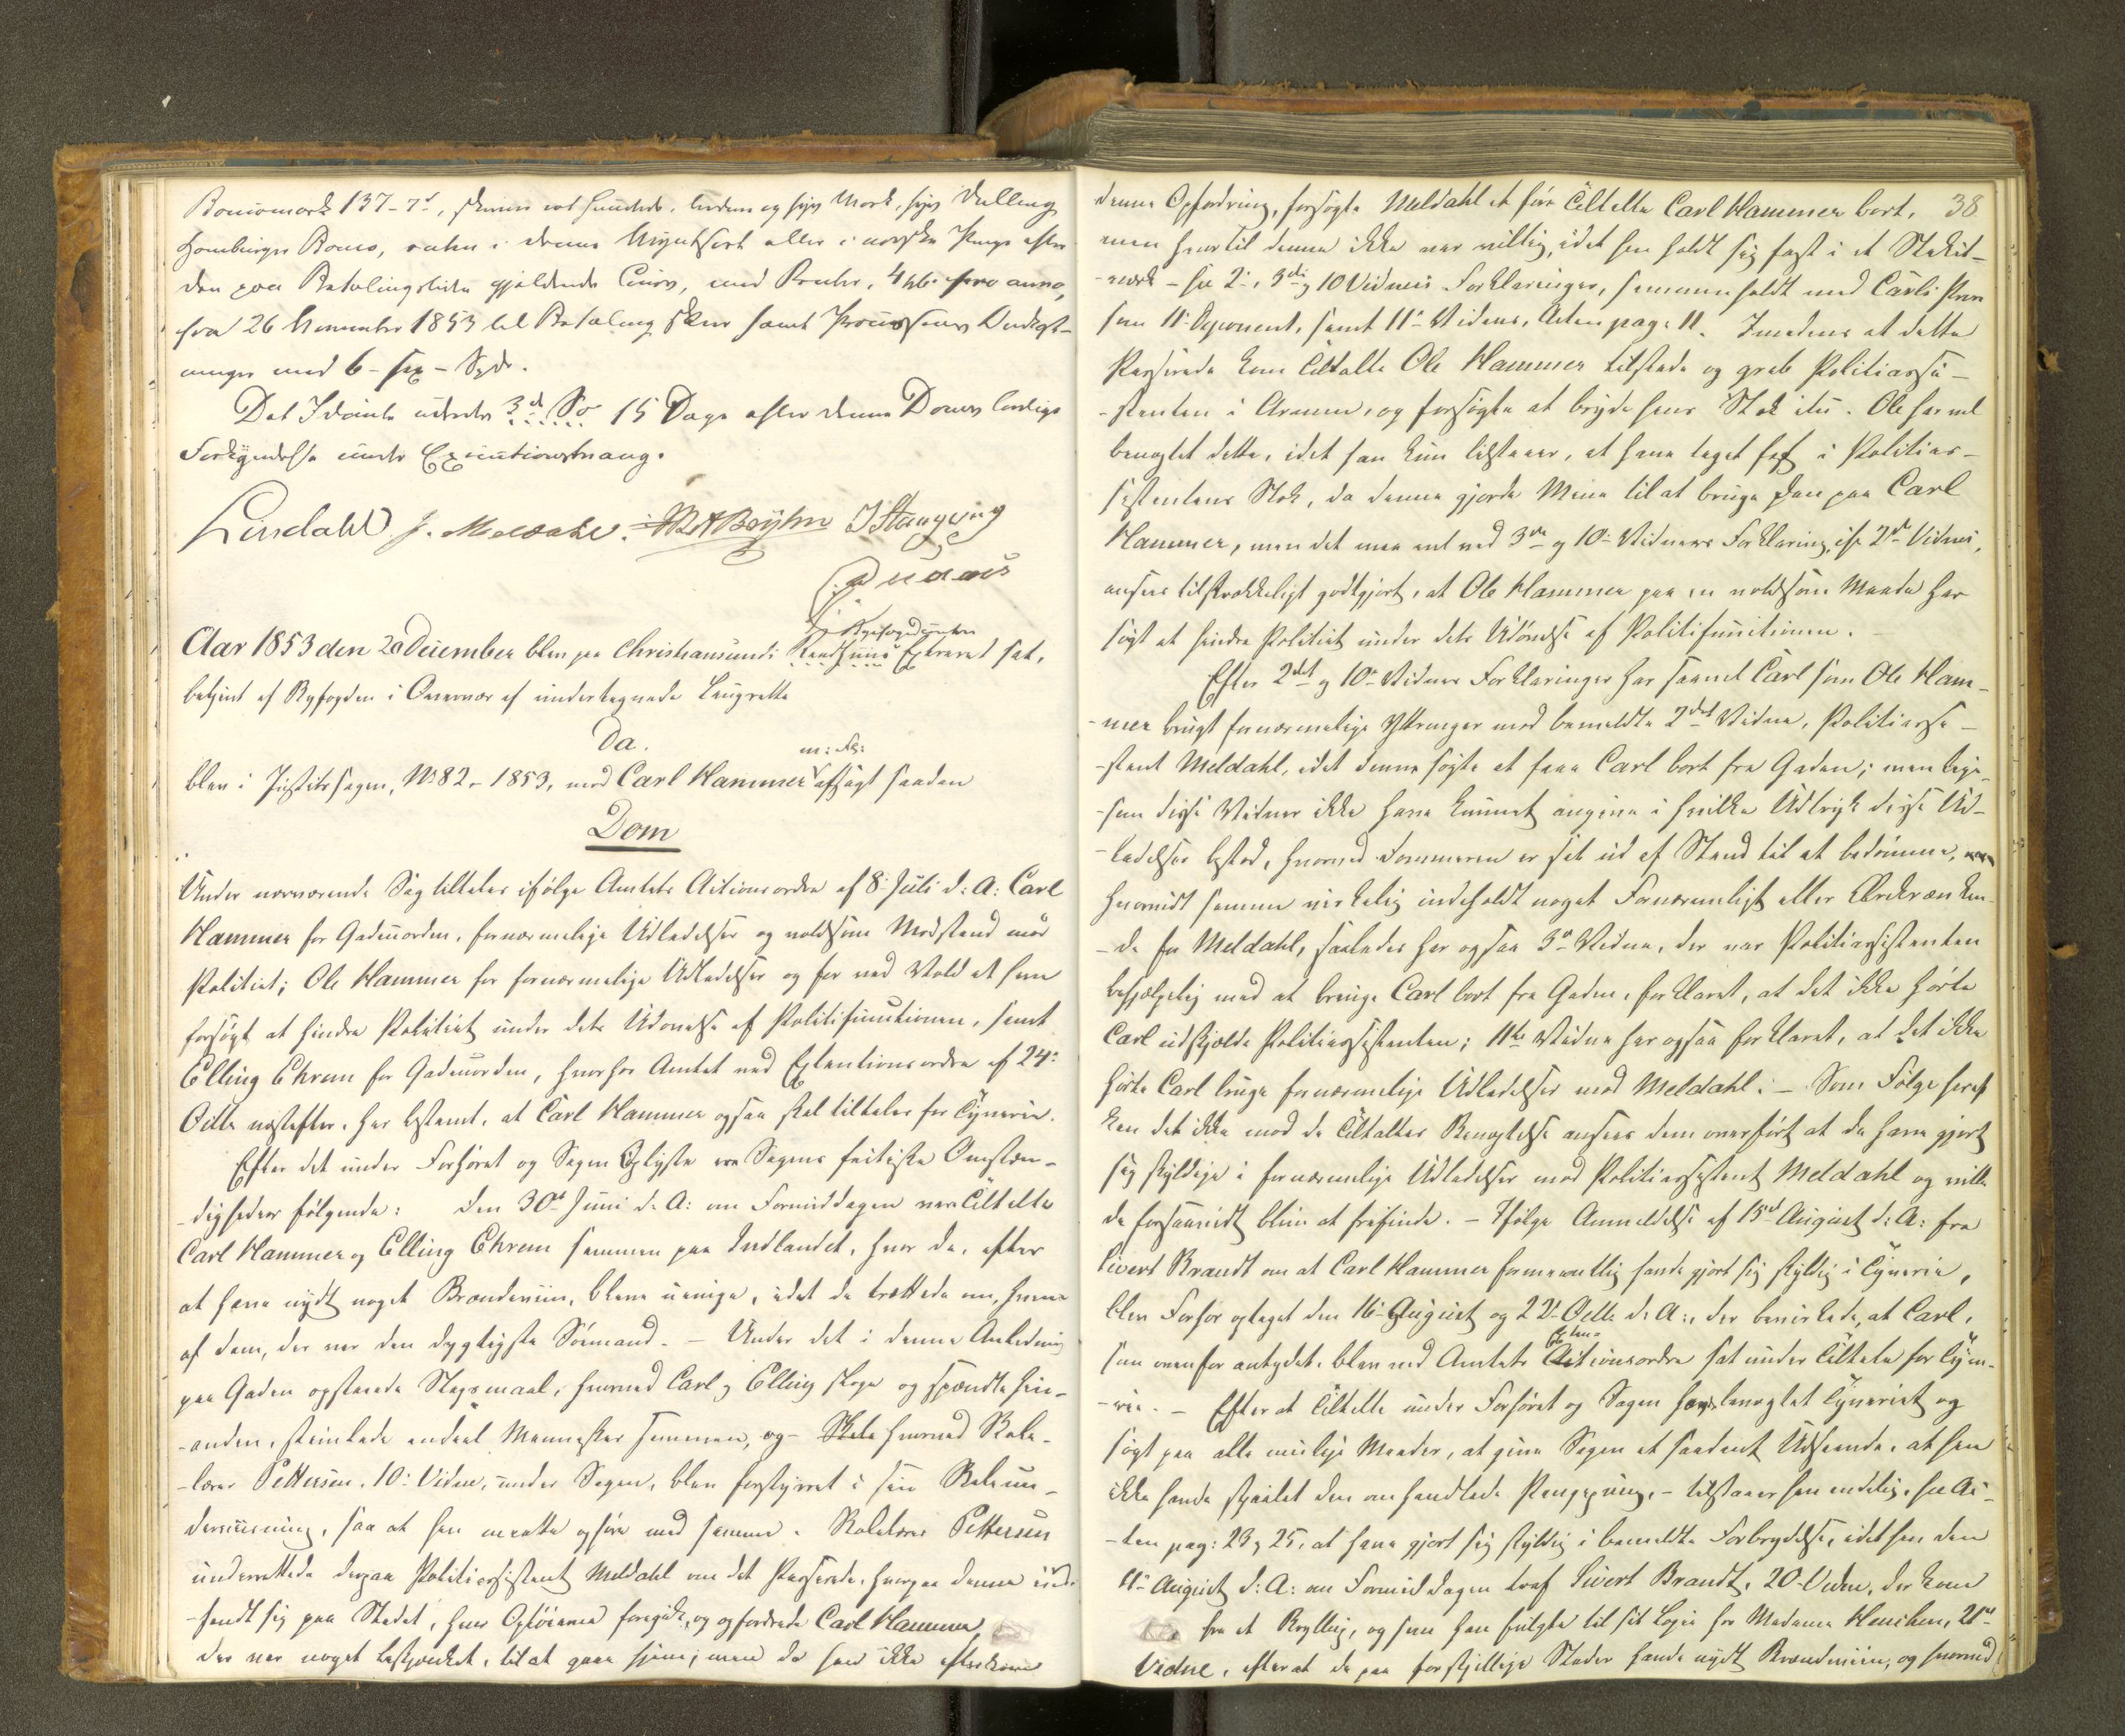 Bancomark 137-7s, skriver et hundrede, tredive og syv Mark, syv Skilling
Hamburger Banco, enten i denne Myntsort eller i norske Penge efter
den paa Betalingstiden gjældende Cours, med Renter, 4 pCt. pro anno,
fra 26 November 1853 til Betaling skeer samt Processens Omkost-
ninger med 6 - sex - Spd.
Det Idømte udredes 3de So 15 Dage efter denne Doms lovlige
Forkyndelse under Executionstvang.
Lindahl J. Meldahl. Brÿhn J Stangvig
Byfogedens
Aar 1853 den 20 December blev paa Christiansunds Raadhuus Extraret sat,
betjent af Byfogden i Overvær af undertegnede Laugrette
Da.
m: Fl:
blev i Justitssagen, No 82 - 1853, mod Carl Hammer afsagt saadan
Dom
Under nærværende Sag tiltales ifølge Amtets Actionsordre af 8 Juli d: A: Carl
Hammer for Gadeuorden, fornærmelige Udladelser og voldsom Modstand mod
Politiet; Ole Hammer for fornærmelige Udladelser og for ved Vold at have
forsøgt at hindre Politiet under dets Udøvelse af Politifunctionen, samt
Elling Ekrem for Gadeuorden, hvorhos Amtet ved Extentionsordre af 24:
Octbr næstefter, har bestemt, at Carl Hammer ogsaa skal tiltales for Tyverie.
Efter det under Forhøret og Sagen Oplyste ere Sagens factiske Omstæn-
-digheder følgende: Den 30te Juni d: A: om Formiddagen vare Tiltalte
Carl Hammer og Elling Ekrem sammen paa Indlandet, hvor de, efter
at have nydt noget Brændeviin, bleve uenige, idet de trættede om, hvem
af dem, der var den dygtigste Sømand. - Under det i denne Anledning
paa Gaden opstaaede Slagsmaal, hvorved Carl og Elling sloge og spændte hin-
-anden, stimlede endeel Mennesker sammen, og - Skole hvorved Skole-
-lærer Pettersen, 10: Vidne, under Sagen, blev forstyrret i sin Skoleun-
derviisning, saa at han maatte ophøre med samme. Skolelærer Pettersen
underrettede derpaa Politiassistent Meldahl om det Passerede, hvorpaa denne ind-
-fandt sig paa Stedet, hvor Optøierne foregik, og opfordrede Carl Hammer,
der var noget beskjænket, til at gaae hjem; men da han ikke efterkom
38
denne Opfordring, forsøgte Meldahl at føre Tiltalte Carl Hammer bort,
men hvortil denne ikke var villig, idet han holdt sig fast i et Stakit-
-værk - see 2:, 3die og 10 Vidners Forklaringer, sammenholdt med Carls
som 11: Deponent, samt 11: Vidnes, Acten pag: 11. Imedens at dette
Passerede kom Tiltalte Ole Hammer tilstede og greb Politiassi-
-stenten i Armen, og forsøgte at bryde hans Stok itu. Ole har vel
benegtet dette, idet han kun tilstaaer, at have taget fat i Politias-
sistentens Stok, da denne gjorde Mine til at bruge den paa Carl
Hammer, men det maa vel ved 3die og 10: Vidners Forklaring, cfr 2det Vidnes,
ansees tilstrækkeligt godtgjort, at Ole Hammer paa en voldsom Maade har
søgt at hindre Politiet under dets Udøvelse af Politifunctionen.
Efter 2det og 10de Vidners Forklaringer har saavel Carl som Ole Ham-
-mer brugt fornærmelige Yttringer mod bemeldte 2det Vidne, Politiassi-
-stent Meldahl, idet denne søgte at faae Carl bort fra Gaden; men lige-
-som disse Vidner ikke have kunnet angive i hvilke Udtryk disse Ud-
-ladelser bestod, hvorved Dommeren er sat ud af Stand til at bedømme,
hvorvidt samme virkelig indeholdt noget Fornærmeligt eller Ærekrænken-
-de for Meldahl, saaledes har ogsaa 3die Vidne, der var Politiassistenten
behjælpelig med at bringe Carl bort fra Gaden, forklaret, at det ikke hørte
Carl udskjælde Politiassistenten; 11te Vidne har ogsaa forklaret, at det ikke
hørte Carl bruge fornærmelige Udladelser mod Meldahl: - Som Følge heraf
kan det ikke mod de Tiltaltes Benegtelse ansees dem overført at de have gjort
sig skyldige i fornærmelige Udladelser mod Politiassistent Meldahl og ville
de forsaavidt blive at frifinde. - Ifølge Anmeldelse af 15de August d: A: fra
Sivert Brandt om at Carl Hammer formeentlig havde gjort sig skyldig i Tyverie,
blev Forhør optaget den 16: August og 22: Octbr d: A:, der bevirkede, at Carl,
Exten-
som ovenfor antydet, blev ved Amtets Actionsordre sat under Tiltale for Tyve-
-rie. - Efter at Tiltalte under Forhøret og Sagen havde benegtet Tyveriet og
søgt paa alle mulige Maader, at give Sagen et saadant Udseende, at han
ikke havde stjaalet den omhandlede Pengepung, - tilstaaer han endelig, see Ac-
-ten pag: 23 og 25, at have gjort sig skyldig i bemeldte Forbrydelse, idet han den
11: August d: A: om Formiddagen traf Sivert Brandt, 20 Vidne, der kom
fra et Bryllup, og som han fulgte til sit Logie hos Madame Henchen, 21:
Vidne, efterat de paa forskjellige Steder havde nydt Brændeviin, og hvorved